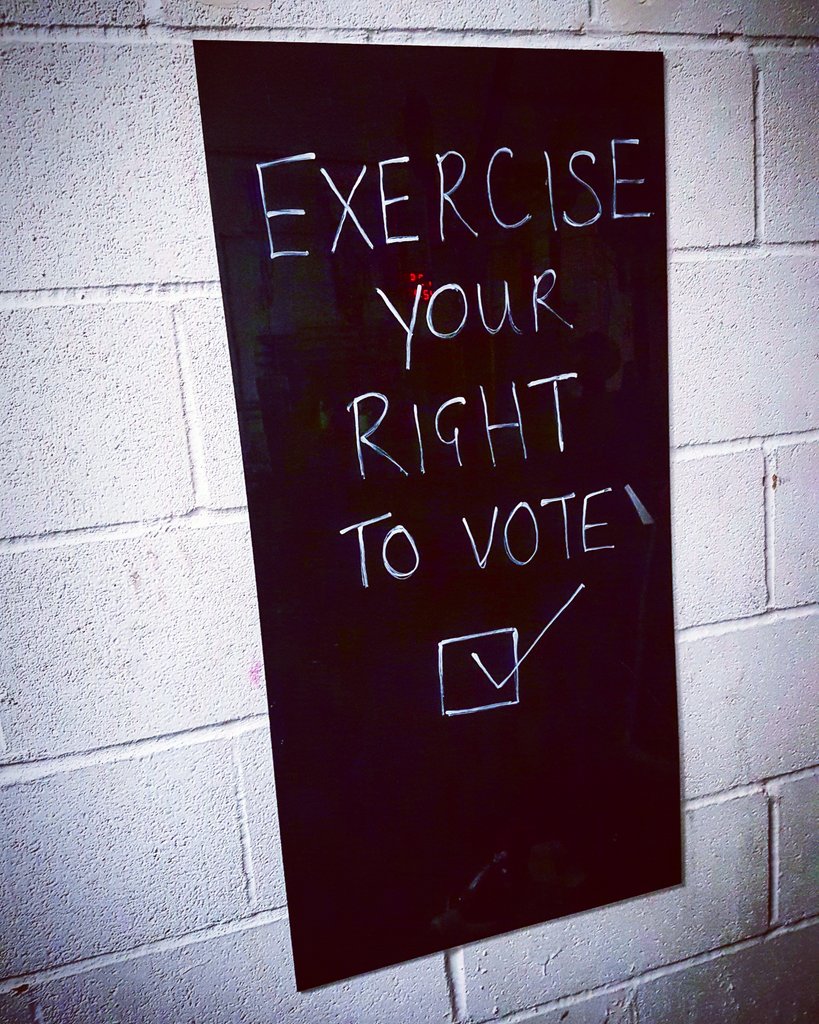 EXERCISE
YOUR
RIGHT
TO VOTE